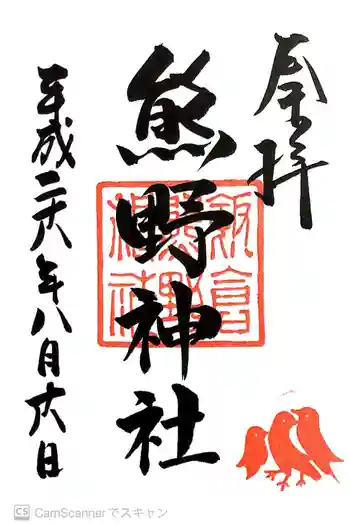 奉拝
熊野神社
平成二十六年八月十六日
飯倉
熊野
神社
CS CamScannerでスキャン